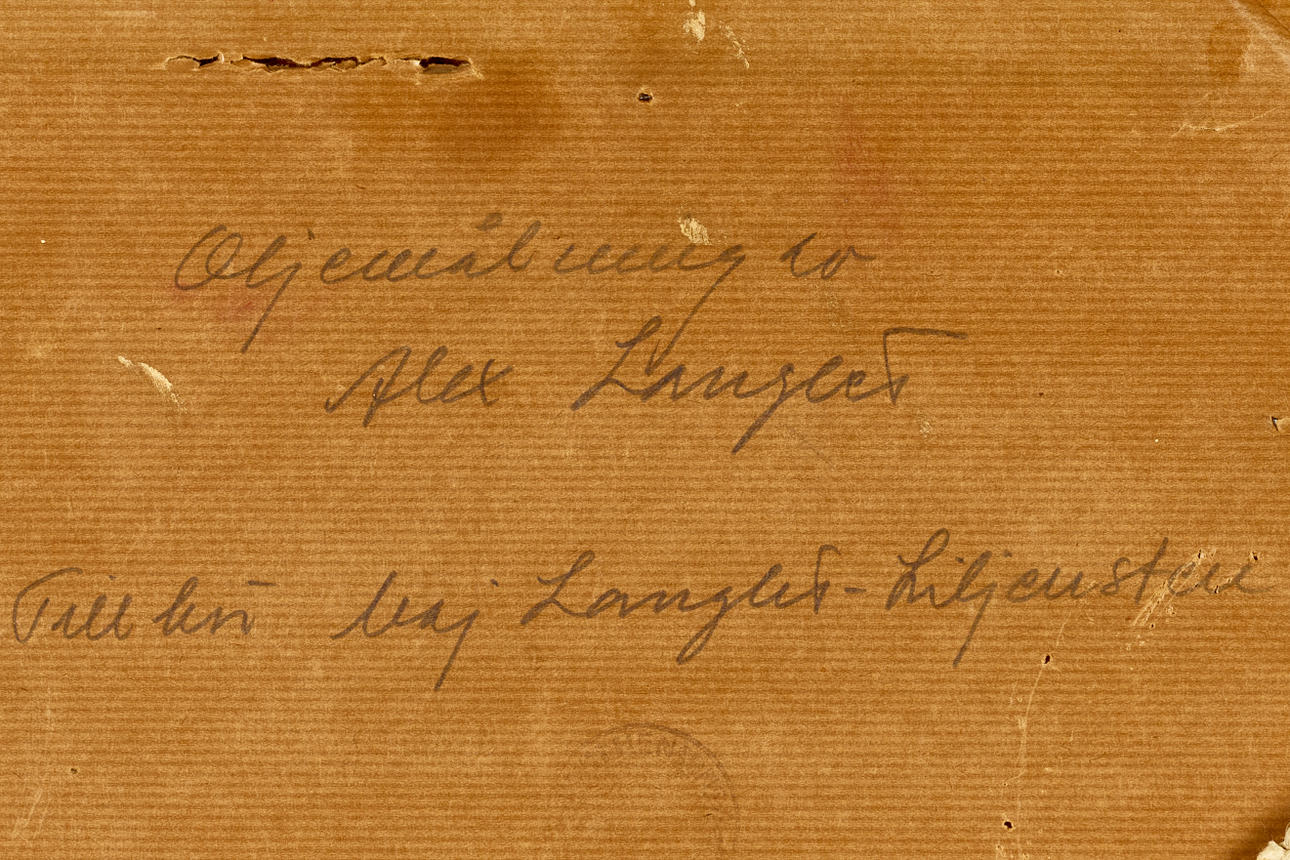 Oljemålning av
Alex Langlet
Tillhör Maj Langlet-Liljensten